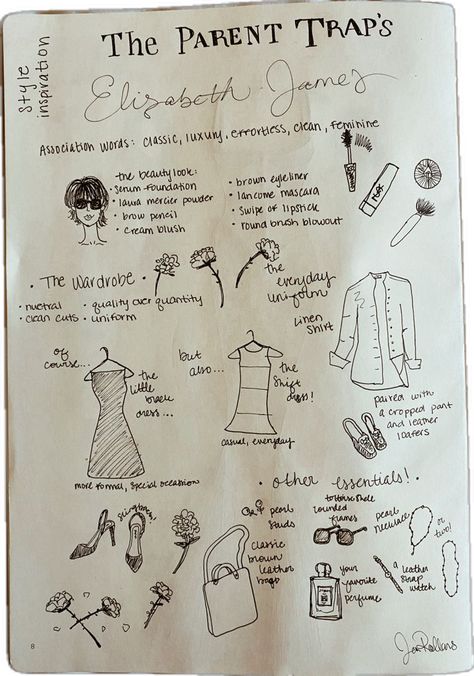 Style
inspiration
The Parent Trap's
Elizabeth James
Association Words: classic, luxury, effortless, clean, feminine
the beauty look:
• serum foundation
• laura mercier powder
• brow pencil
• cream blush
• brown eyeliner
• lancome mascara
• swipe of lipstick
• round brush blowout
• The Wardrobe •
• nuetral
• quality over quantity
• clean cuts
• uniform
the
everyday
uniform
linen
shirt
paired with
a cropped pant
and leather
loafers
of
course...
the
little
black
dress...
more formal, special occassion
but
also...
the
shift
dress!
casual, everyday
• other essentials! •
slingbacks!
classic
brown
leather
bags
pearl
studs
tortoise shell
rounded
frames
pearl
necklace
or
two!
your
favorite
perfume
a
leather
strap
watch
8